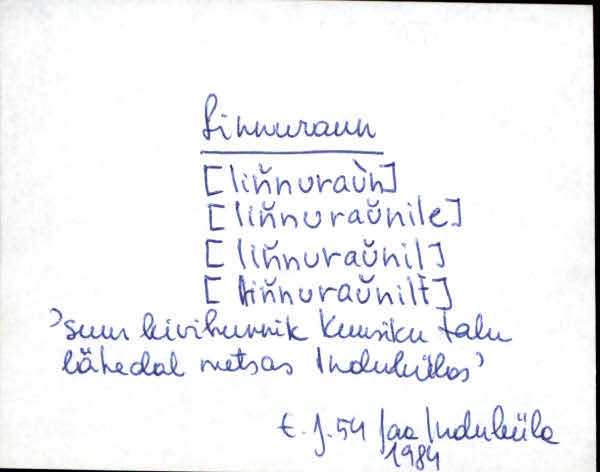 Linnuraun
[liň̀nuraùn]
[liňnuraŭnile]
[liňnuraŭnil]
[liňnuraŭnilt]
'suur kivihunnik Kuusiku talu
lähedal metsas Induküлas'
E. J. 54 Jaa Induküla
1984